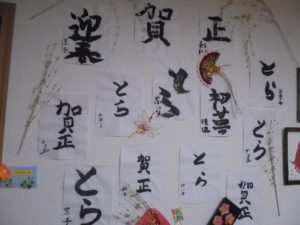 迎春
賀
正
とら
とら
とら
初夢
賀正
賀正
とら
とら
とら
賀正